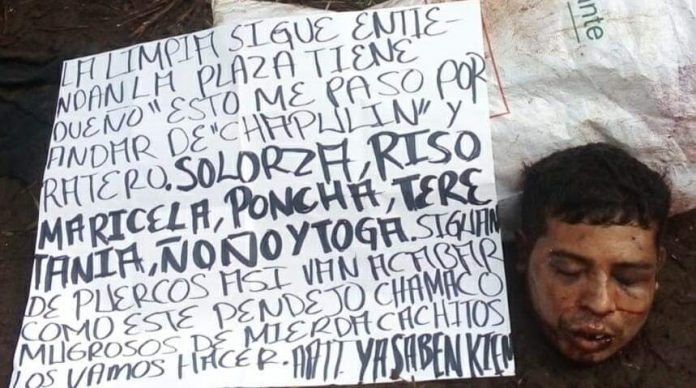 LA LIMPIA SIGUE ENTIE-
NDAN LA PLAZA TIENE
DUEÑO" ESTO ME PASO POR
ANDAR DE "CHAPULIN" Y
RATERO. SOLORZA, RISO
MARICELA, PONCHA, TERE
TANIA, ÑOÑO Y TOGA. SIGUAN
DE PUERCOS ASI VAN ACABAR
COMO ESTE PENDEJO CHAMACO
MUGROSOS DE MIERDA CACHITOS
LOS VAMOS HACER. YA SABEN KIEN
ante